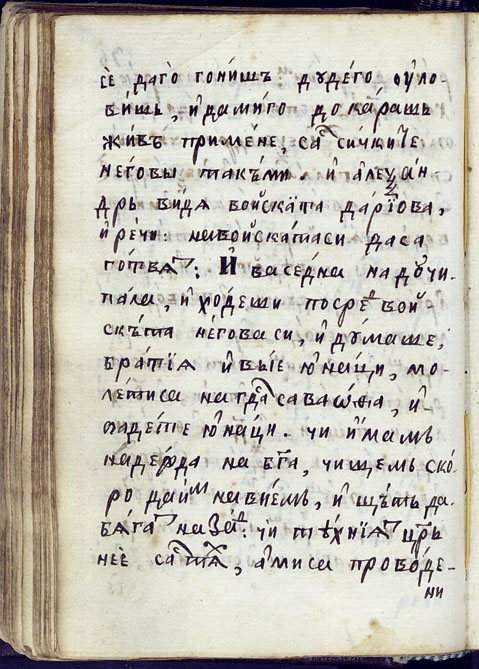 сѐ даго̀ гони́шъ. ду де́го ѹло
би́шь, и҆ да ми́го дока́рашь
жи́въ при ме́не, саⷭ҇ си́чки́те
не́говы та́къми. и҆ а҆леѯа́н
дръ ви́дѧ во́йска́та да́рїова,
и҆ речѐ: на во́йска́та си да са
гѡ́твѧⷮ: И҆ васе́дна на дꙋчи-
па́ла, и҆ хо́деши посреⷣ вой-
скъ́та не́гова си, и҆ дꙋ́маше,
бра́тїѧ и҆ вы́е ю҆на́ци, мо-
ле́тиса на гдⷭ҇а саваѡ́ѳа, и҆-
ѡадете ю҆на́ци. чи и҆́мамъ
наде́жда на бг҃а, чи щемъ ско́-
ро да и҆ⷨ навїе́мъ, и҆ щѫ́тъ да-
бѧ́гаⷮ на заⷣ. чи тѣ́хнїѧⷮ цр҃ь
нѐе саⷭ҇ тѧⷯ, а҆ми са прово́де-
ни